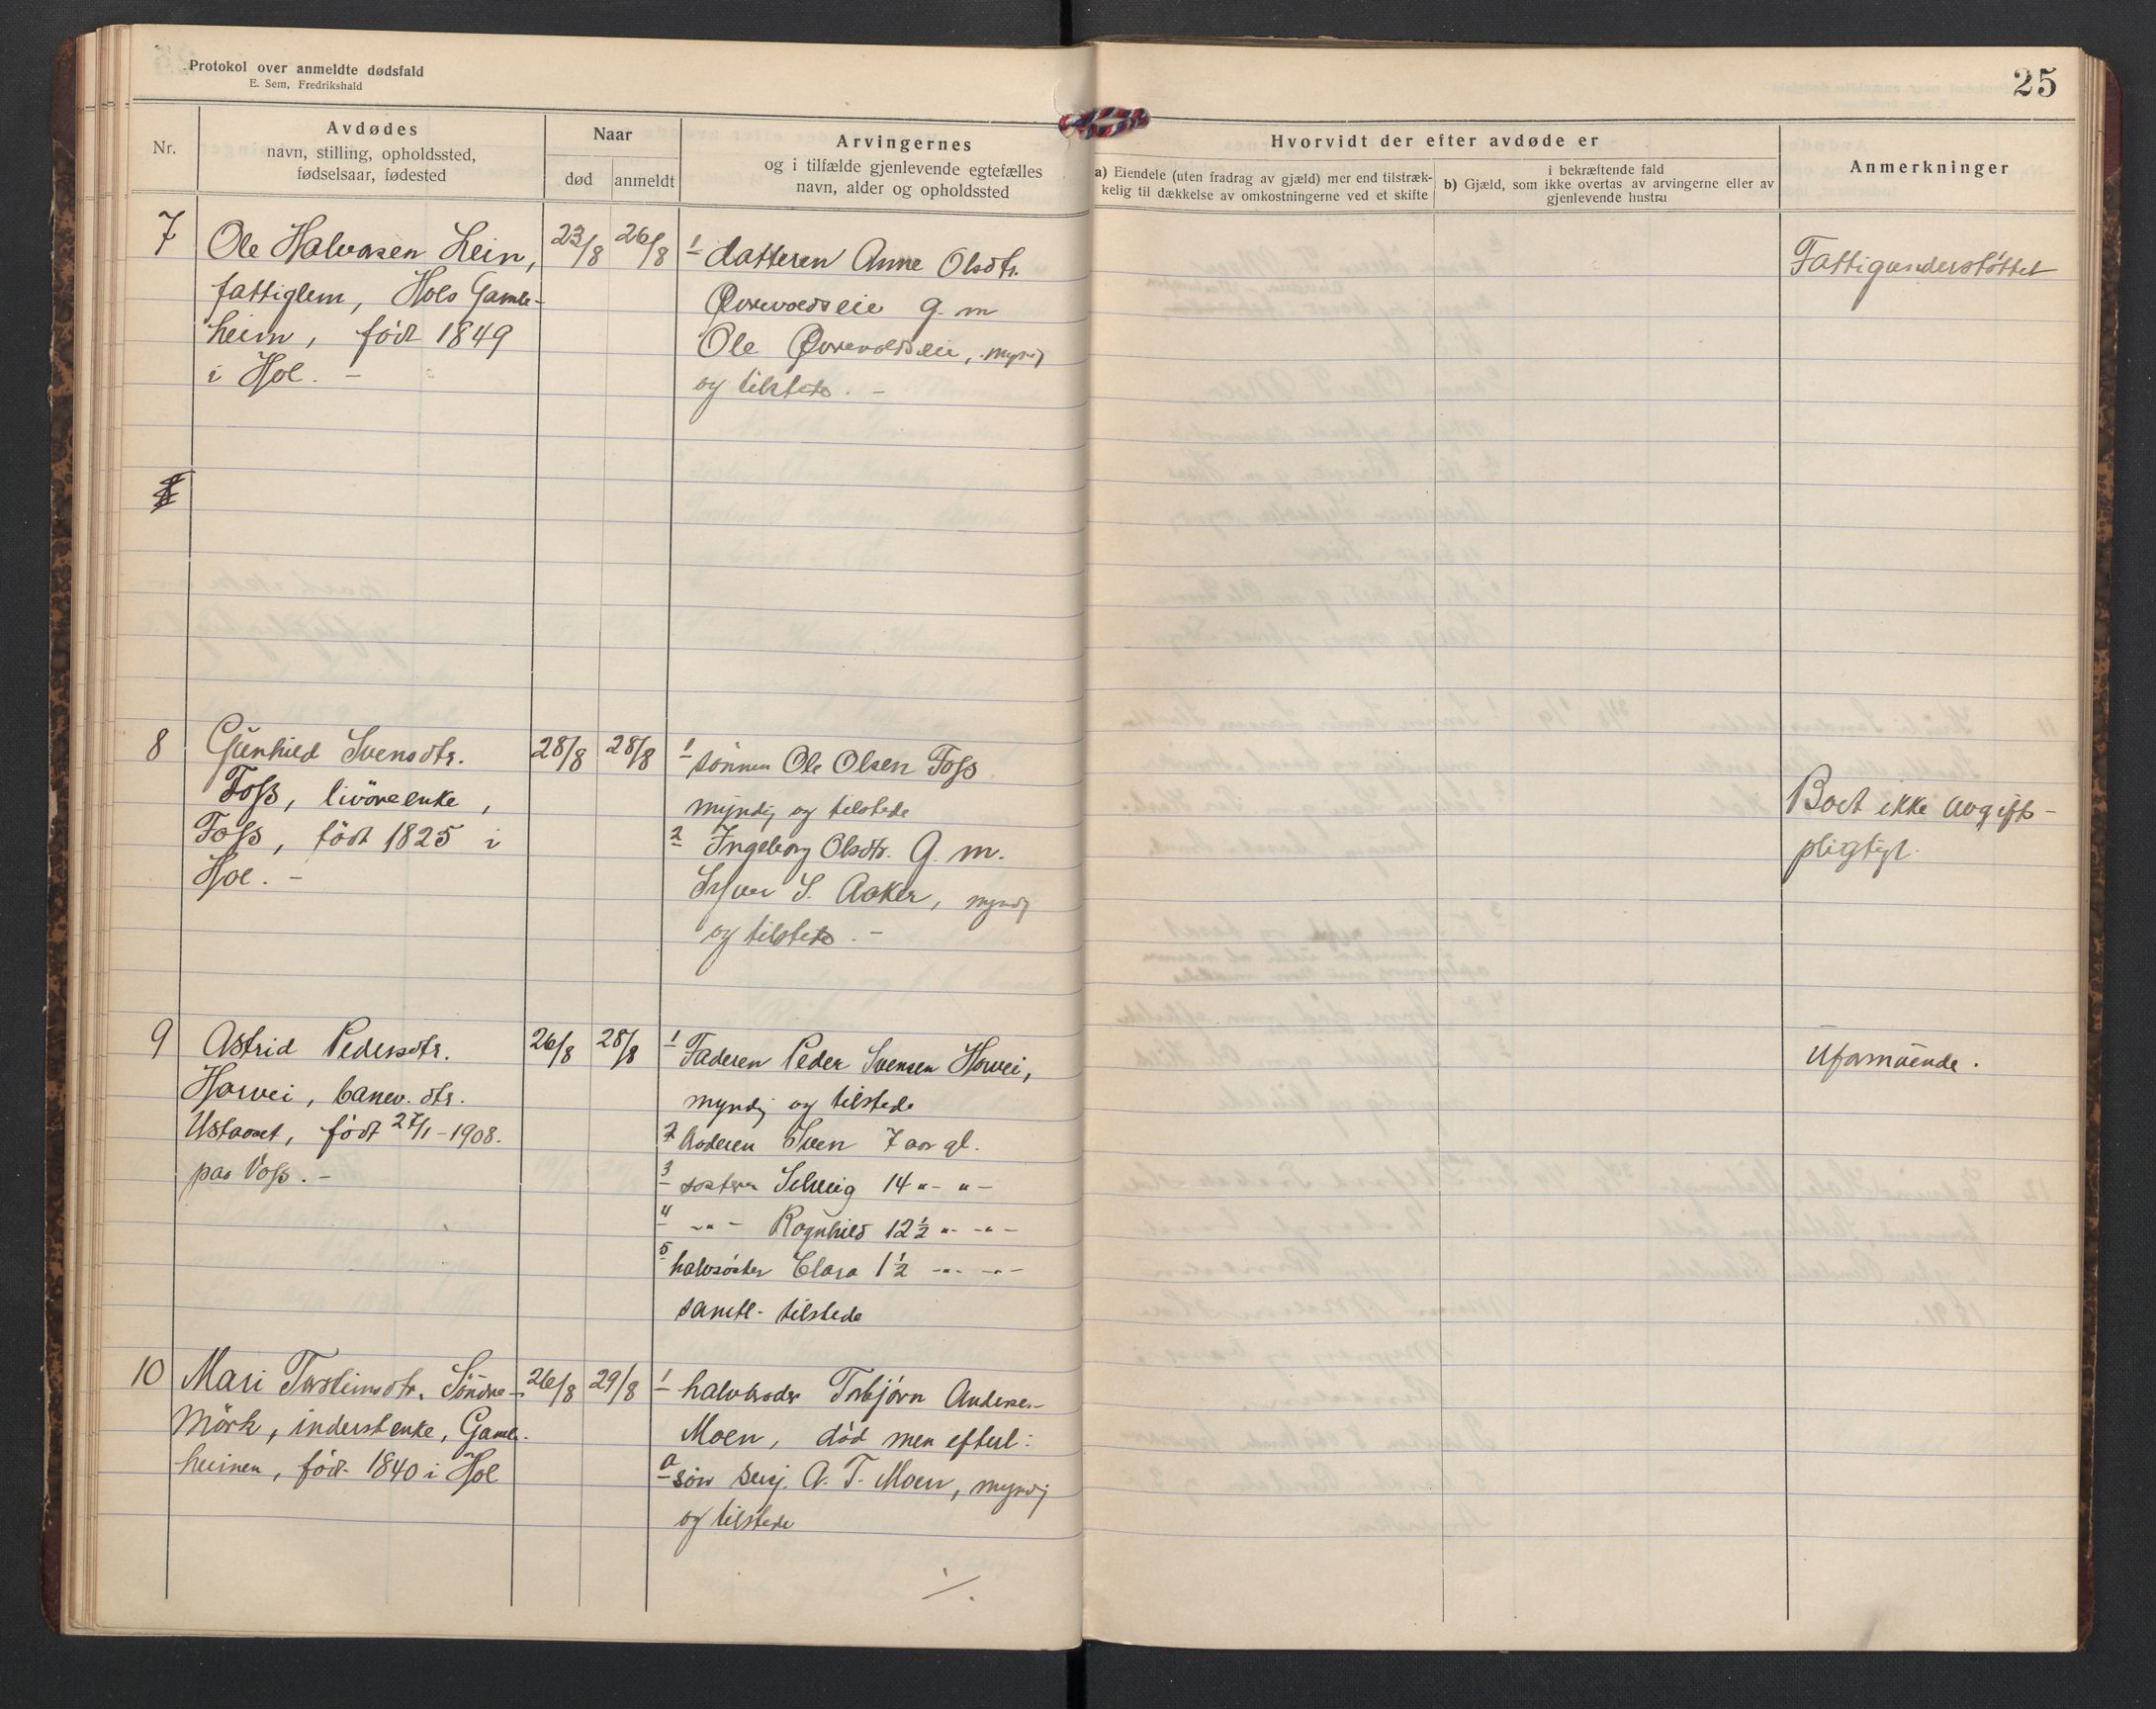 Protokol over anmeldte dødsfald
E. Sem, Fredrikshald
25
Nr.
Avdødes
navn, stilling, opholdssted,
fødselsaar, fødested
Naar
død
anmeldt
Arvingernes
og i tilfælde gjenlevende egtefælles
navn, alder og opholdssted
Hvorvidt der efter avdøde er
a) Eiendele (uten fradrag av gjæld) mer end tilstræk-
kelig til dækkelse av omkostningerne ved et skifte
i bekræftende fald
b) Gjæld, som ikke overtas av arvingerne eller av
gjenlevende hustru
Anmerkninger
7
Ole Halvorsen Lein,
fattiglem, Hols Gamle-
heim, født 1849
i Hol. –
23/8
26/8
1 datteren Anne Olsdtr.
Øvrevoldseie g. m
Ole Øvrevoldseie, myndig
og tilstede. –
Fattigunderstøttet
8
Gunhild Svensdtr.
Foss, livöreenke,
Foss, født 1825 i
Hol. –
28/8
28/8
1 sönnen Ole Olsen Foss
myndig og tilstede
2 Ingeborg Olsdtr. g. m.
S. Aaker, myndig
og tilstede. –
Boet ikke avgifts-
pligtigt.
9
Astrid Pedersdtr.
Horvei, banev. dtr.
Ustaoset, født 27/1 – 1908.
paa Voss. –
26/8
28/8
1 Faderen Peder Svensen Horvei,
myndig og tilstede
2 broderen Sven 7 aar gl.
3 søsteren Solveig 14 " – " –
4 – " – Ragnhild 12½ " – – " –
5 halvsøster Clara 1½ – " – – " –
samtl. tilstede
Uformuende.
10
Mari Torsteinsdtr. Söndre-
Mörk, inderstenke, Gamle-
heimen, født 1840 i Hol
26/8
29/8
1 halvbroder Torbjørn Anderse-
Moen, død men efterl:
a søn serg. A. T. Moen, myndig
og tilstede
./.